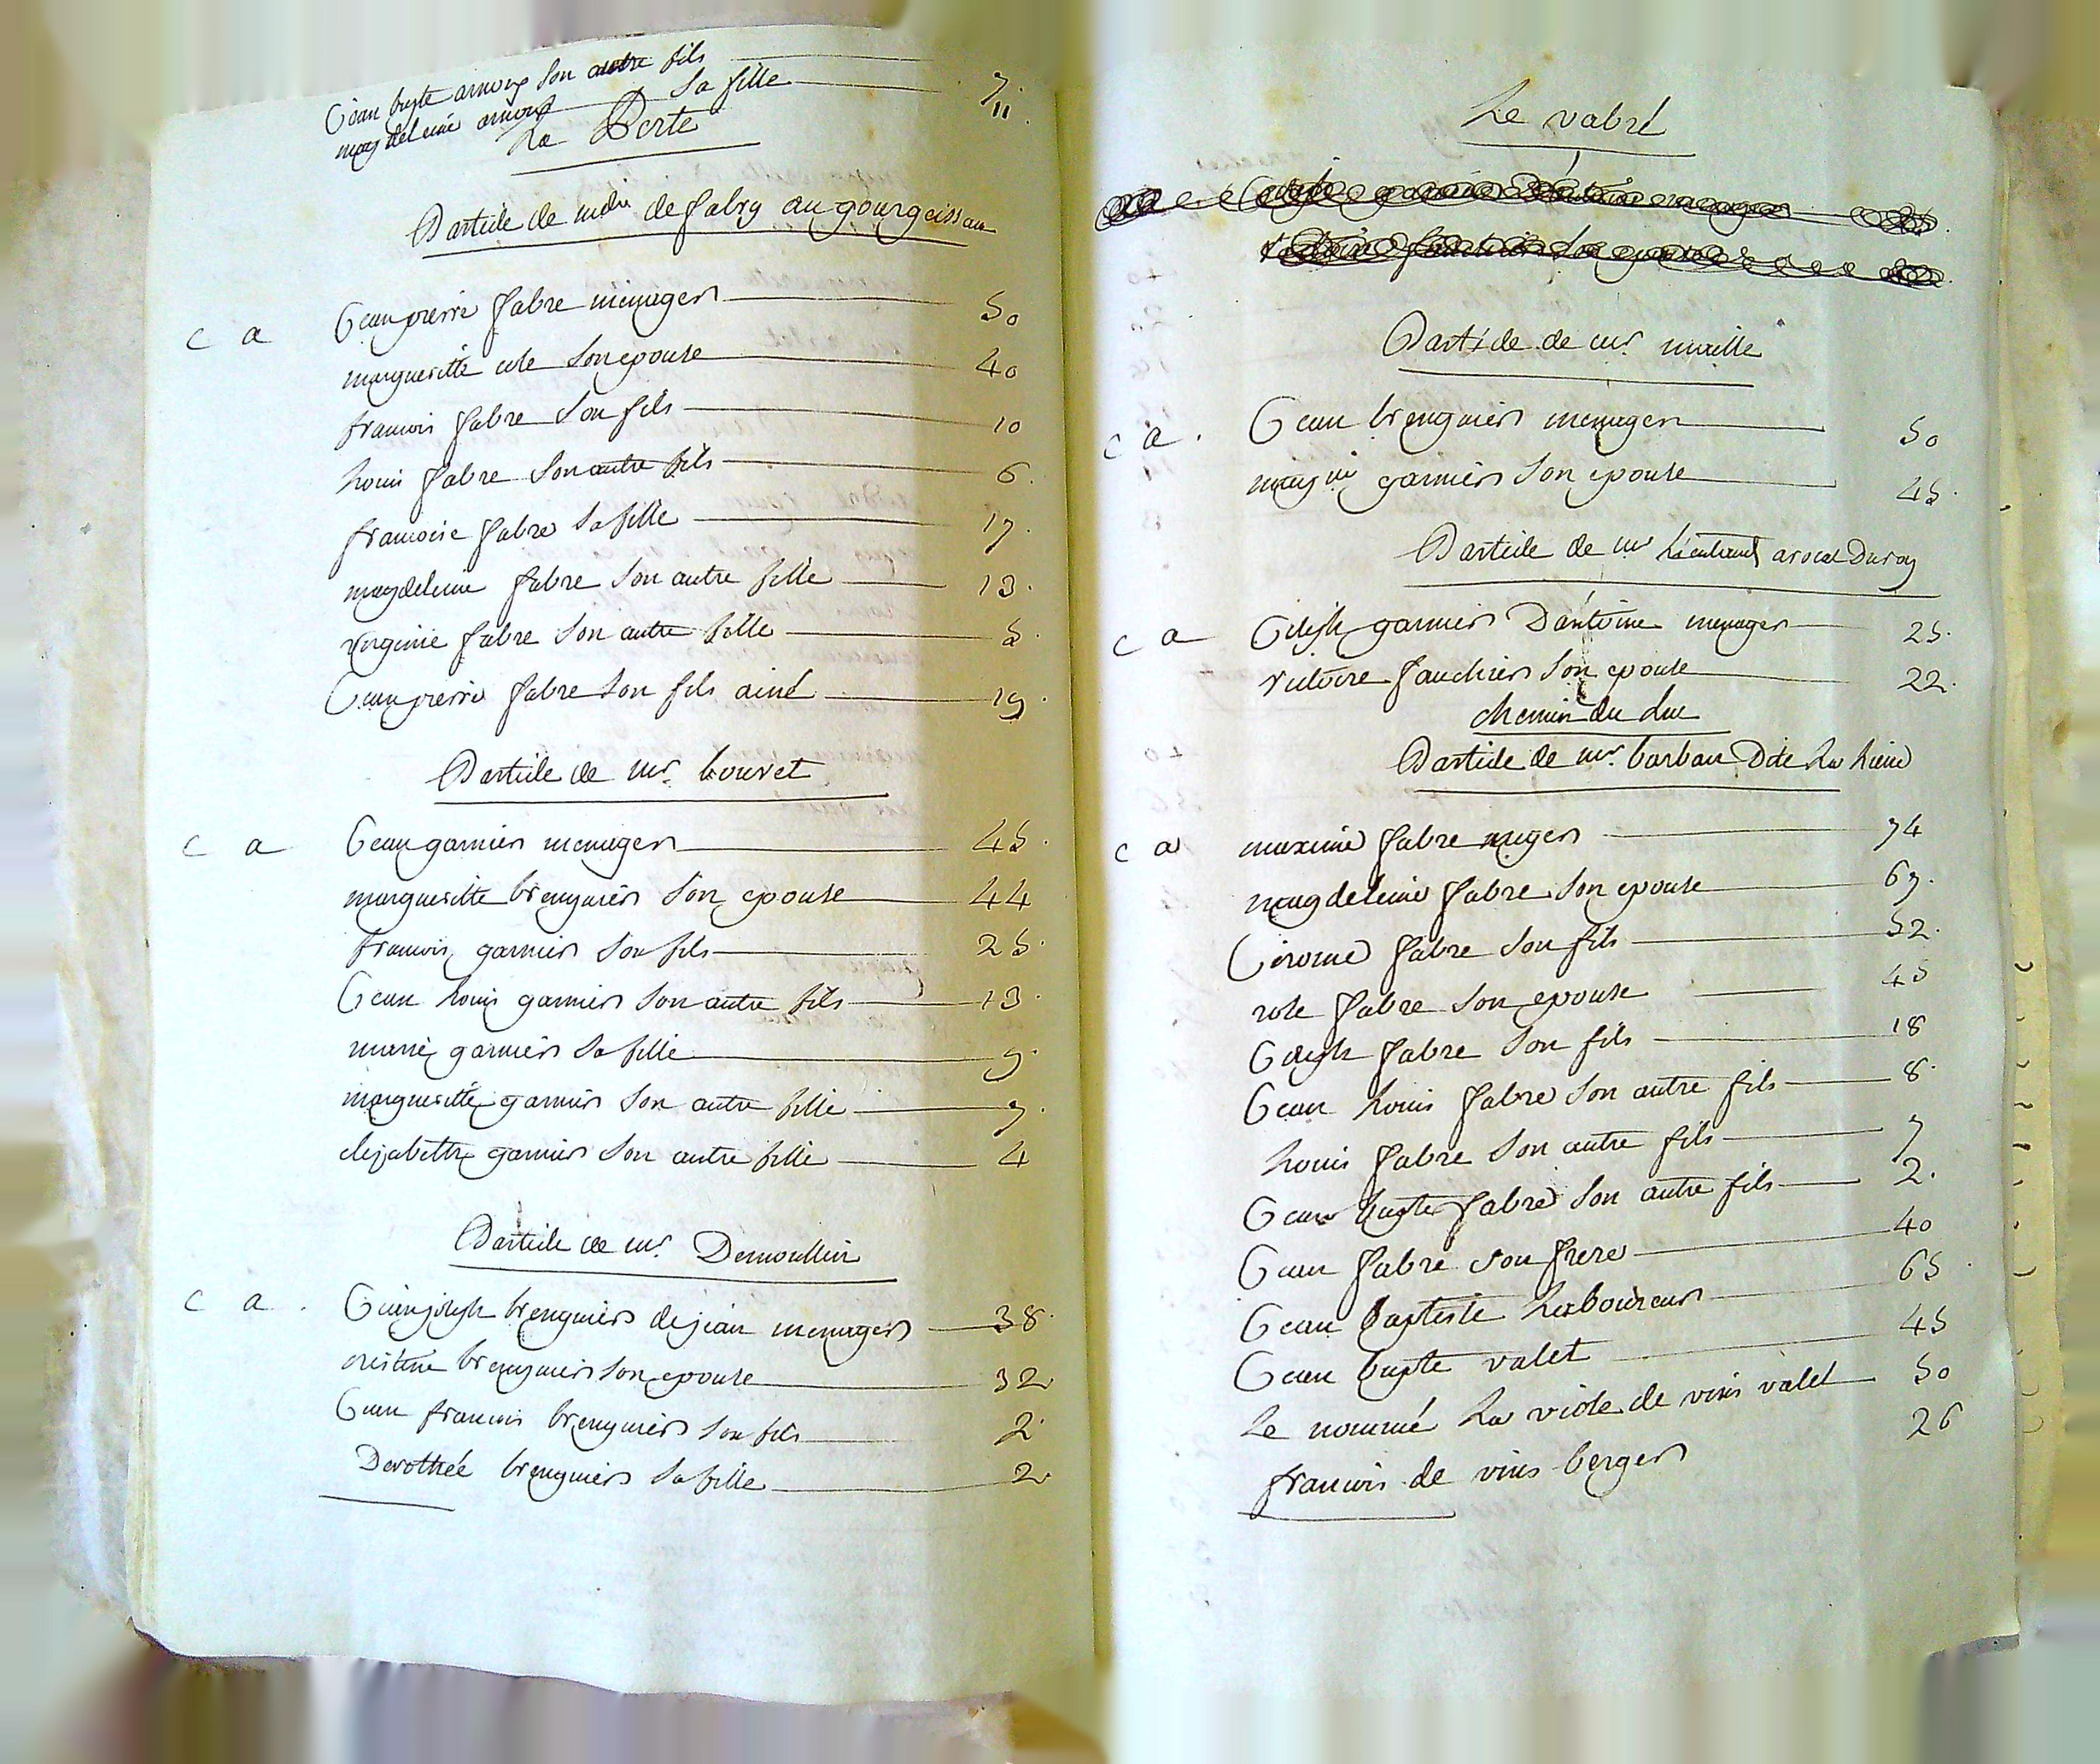 Jean bapte amoux son autre fils 7
magdeleine amoux sa fille 11
La Perte
Bastide de mde de fabry au gourgeissau
c a Jean pierre fabre ménager 50
margueritte cole son epouse 40
francois fabre son fils 10
Louis fabre son autre fils 6.
francoise fabre sa fille 17.
magdeleine fabre son autre fille 13.
virginie fabre son autre fille 5.
Jean pierre fabre son fils ainé 19.
Bastide de mr. bouvet
c a Jean garnier menager 45.
margueritte brenguier son epouse 44
francois garnier son fils 25.
Jean Louis garnier son autre fils 13.
marie garnier sa fille 9.
margueritte garnier son autre fille 7.
elizabeth garnier son autre fille 4
Bastide de mr. Demoullin
c a . Jean joseph brenguier de jean menager 38.
cristine brenguier son epouse 32.
Jean francois brenguier son fils 2.
Dorothée brenguier sa fille 2.
Le vabre
Bastide de mr. maille
c a . Jean brenguier menager 50
garnier son epouse 45.
Bastide de mr Lieutaud avocat Du roy
c a Joseph garnier D'antoine menager 25.
victoire fauchier son epouse 22.
chemin du luc
Bastide de mr. barbau Dite La
c a maxime fabre mager 74
magdeleine fabre son epouse 67.
Jérome fabre son fils 52.
rose fabre son epouse 45
Joseph fabre son fils 18
Jean Louis fabre son autre fils 8.
Louis fabre son autre fils 7
Jean bapte fabre son autre fils 2.
Jean fabre son frere 40
Jean baptiste Laboureur 65.
Jean bapte valet 45
Le nommé La viole de vins valet 50
francois de vins berger 26